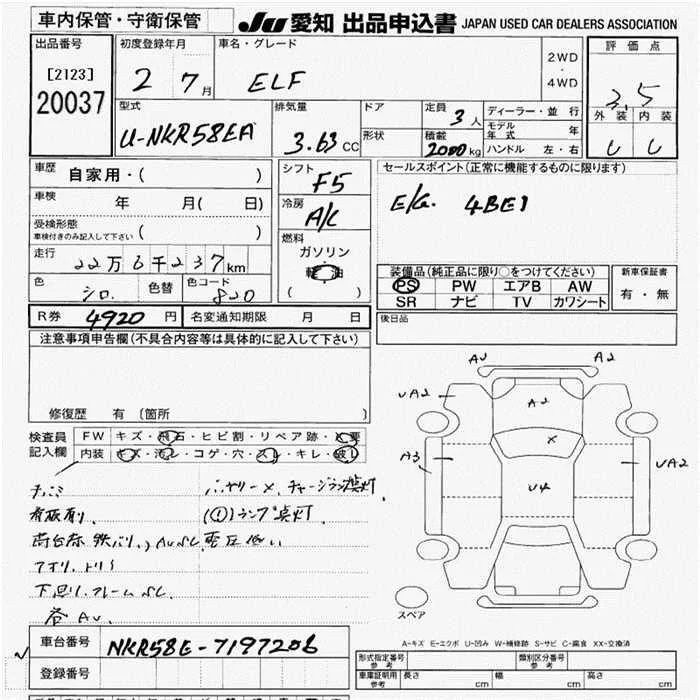 車内保管・守衛保管
JU 愛知 出品申込書 JAPAN USED CAR DEALERS ASSOCIATION
出品番号 初度登録年月 車名・グレード 2WD・4WD 評価点
[2123] 2 7月 ELF 3.5
20037
型式 排気量 ドア 定員 3人 ディーラー・並行 外装 内装
U-NKR58EA 3.63 CC 形状 積載 2000kg モデル年式 年
ハンドル 左・右
車歴 自家用・( ) シフト F5 セールスポイント(正常に機能するものに限ります)
車検 年 月( 日) 冷房 A/C E/G. 4BE1
受検形態 車検付きのみ記入して下さい ( ) 燃料 ガソリン
走行 22万6千237km 軽油 ( )
装備品(純正品に限り○をつけてください) 新車保証書
PS PW エアB AW 有・無
SR ナビ TV カワシート
色 シロ. 色替 色コード 820
R券 4920円 名変通知期限 月 日 後日品
注意事項申告欄(不具合内容等は具体的に記入して下さい)
修復歴 有 (箇所 )
AU A2
UA2 A2
A3 X UA2
U4
検査員記入欄 FW キズ・飛石・ヒビ割・リペア跡・X要
内装 キズ・汚レ・コゲ・穴・スレ・キレ・破レ
バッテリーメ、チャージランプ点灯
(①)ランプ点灯
下回リ、フレーム
スペア
A-キズ E-エクボ U-凹み W-補修跡 S-サビ C-腐食 XX-交換済
車台番号 NKR58E-7197206
登録番号
形式指定番号 参考 類別区分番号 参考
車庫証明用 参考 長さ cm 幅 cm 高さ cm